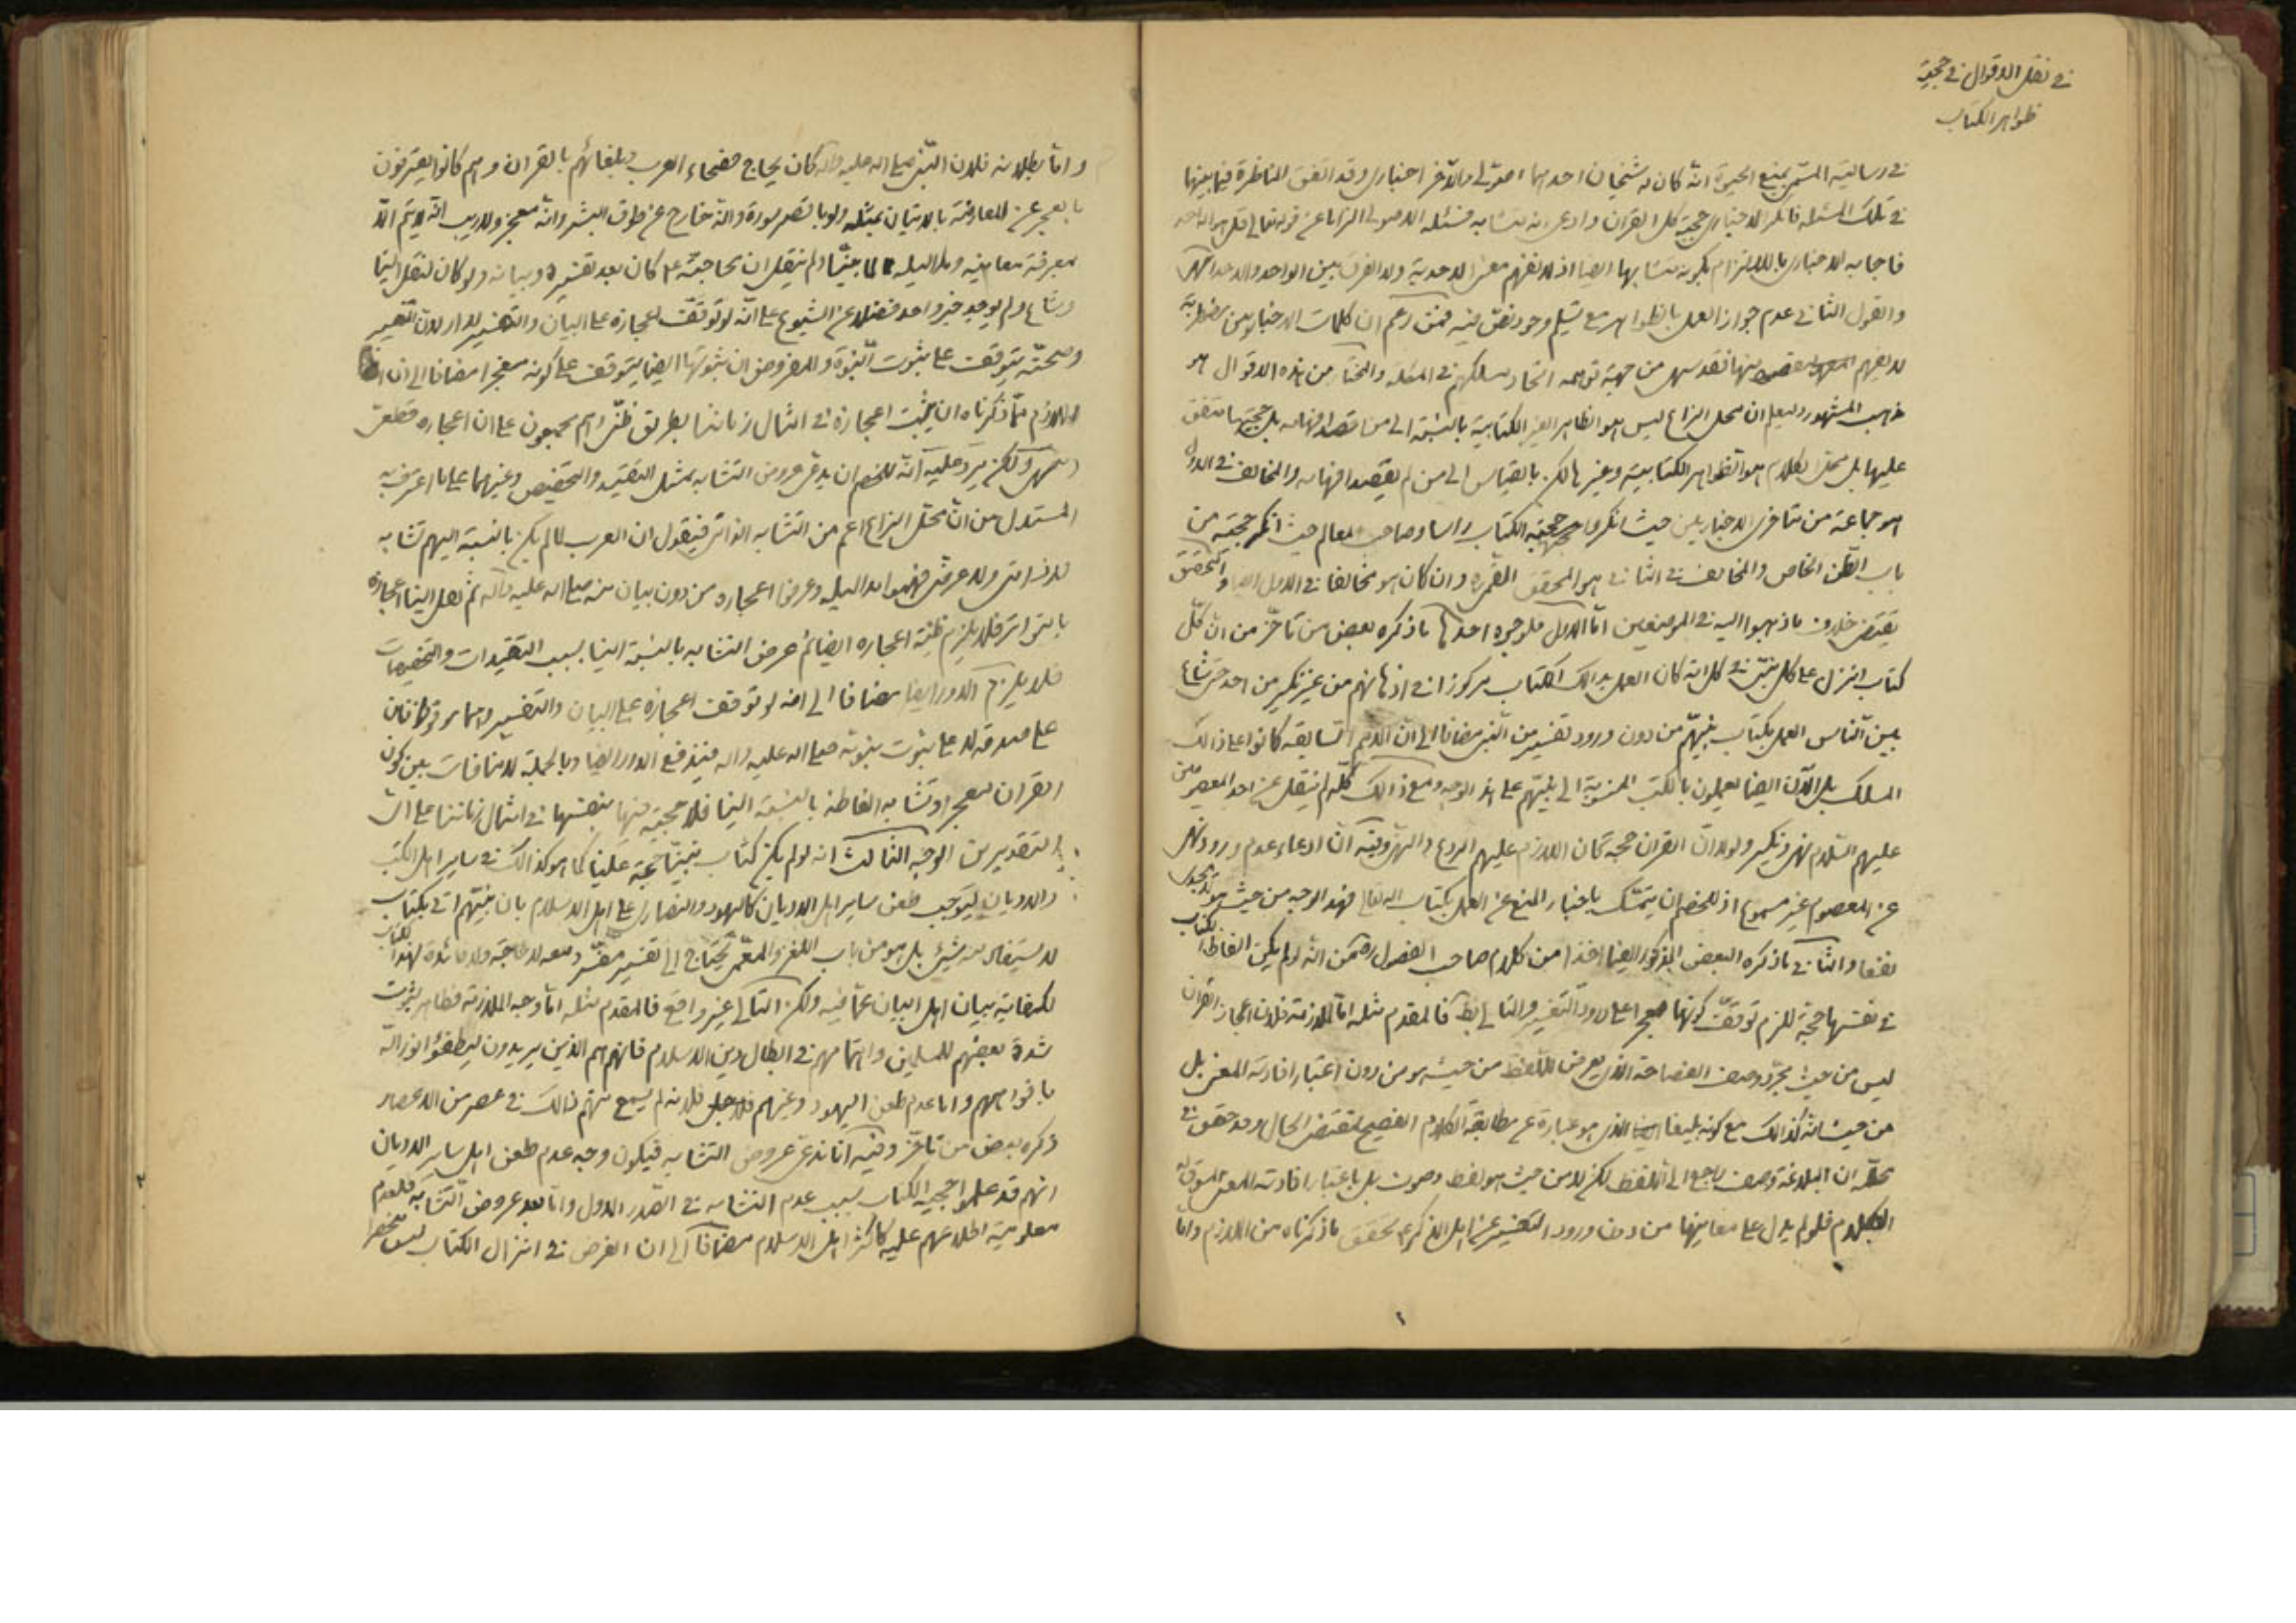 في نقل الاقوال في حجية
ظواهر الكتاب
في رسالته المسمى بمنبع الحيوة انه كان له شيخان احدهما اصولي والآخر اخباري وقد اتفق المناظرة فيما بينهما
في تلك المسئلة فانكر الاخباري حجية كل القران وادعى انه متشابه فسئله الاصولي الزاما عن قوله تعالى قل هو الله احد
فاجابه الاخباري بالالتزام بكونه متشابها ايضا اذ لا نفهم معنى الاحدية ولا الفرق بين الواحد والاحد انتهى
والقول الثاني عدم جواز العمل بالظواهر مع تسليم وجود نص فيه فمن زعم ان كلمات الاخباريين مضطربة
لا يفهم منها فقد سهى من جهة توهمه اتحاد مسلكهم في المسئلة والمختار من هذه الاقوال هو
مذهب المشهور وليعلم ان محل النزاع ليس هو الظاهر الغير الكتابية بالنسبة الى من قصد افهامه بل حجيتها متفق
عليها بل محل الكلام هو الظواهر الكتابية وغيرها لكن بالقياس الى من لم يقصد افهامه والمخالف في الاول
هو جماعة من متاخري الاخباريين حيث انكروا حجية الكتاب راسا وصاحب المعالم حيث انكر حجيته من
باب الظن الخاص والمخالف في الثاني هو المحقق القمي ره وان كان هو مخالفا في الاول ايضا والتحقيق
يقتضي خلاف ما ذهبوا اليه في الموضعين اما الاول فلوجوه احدها ما ذكره بعض من تاخر من ان كل
كتاب انزل على كل نبي في كل امة كان العمل بذالك الكتاب مركوزا في اذهانهم من غير نكير من احد حتى شاع
بين الناس العمل بكتاب نبيهم من دون ورود تفسير من النبي مضافا الى ان الامم السابقة كانوا على ذالك
المسلك بل الآن ايضا يعملون بالكتب المنسوبة الى نبيهم على هذا الوجه ومع ذالك كله لم ينقل عن احد المعصومين
عليهم السلام نهي ونكير ولولا ان القران حجة لكان اللازم عليهم الردع والنهي وفيه ان ادعاء عدم ورود نهي
عن المعصوم غير مسموع اذ للخصم ان يتمسك باخبار المنع عن العمل بكتاب الله تعالى فهذا الوجه من حيث هو لا يجدي
نفعا والثاني ما ذكره البعض المذكور ايضا اخذا من كلام صاحب الفصول ره من انه لو لم يكن الفاظ الكتاب
في نفسها حجة للزم توقف كونها معجزا على ورود التفسير والتالي بط فالمقدم مثله اما الملازمة فلان اعجاز القران
ليس من حيث مجرد وصف الفصاحة الذي يعرض اللفظ من حيث هو من دون اعتبار افادته المعنى بل
من حيث انه كذالك مع كونه بليغا الذي هو عبارة عن مطابقة الكلام الفصيح لمقتضى الحال وقد حقق في
محله ان البلاغة وصف راجع الى اللفظ لكن لا من حيث هو لفظ وصوت بل باعتبار افادته للمعنى المسوق له
الكلام فلو لم يدل على معانيها من دون ورود التفسير عن اهل الذكر ع تحقق ما ذكرناه من اللازم واما
و اما بطلانه فلان النبي صلى الله عليه واله كان يحاج فصحاء العرب وبلغائهم بالقران وهم كانوا يعترفون
بالعجز عن المعارضة بالاتيان بمثله ولو باقصر سورة وانه خارج عن طوق البشر وانه معجز ولا ريب انه لا يتم الا
بمعرفة معانيه ولم ينقل ان محاجته ع كان بعد تفسيره وبيانه ولو كان لنقل الينا
وشاع ولم يوجد خبر واحد فضلا عن الشيوع على انه لو توقف اعجازه على البيان والتفسير لدار لان التفسير
وصحته يتوقف على ثبوت النبوة والمفروض ان ثبوتها ايضا يتوقف على كونه معجزا مضافا الى ان
اللازم مما ذكرناه ان يثبت اعجازه في امثال زماننا بطريق ظني وهم مجمعون على ان اعجازه قطعي
انتهى ولكن يرد عليه انه للخصم ان يدعي عروض التشابه بمثل التقييد والتخصيص وغيرهما على ما اعترف به
المستدل من ان محل النزاع اعم من التشابه الذاتي فيقول ان العرب لما لم يكن بالنسبة اليهم تشابه
لا ذاتي ولا عرضي فهموا مداليله وعرفوا اعجازه من دون بيان منه صلى الله عليه واله ثم نقل الينا اعجازه
بالتواتر فلا يلزم ظنية اعجازه ايضا ثم عرض التشابه بالنسبة الينا بسبب التقييدات والتخصيصات
فلا يلزم الدور ايضا مضافا الى انه لو توقف اعجازه على البيان والتفسير وهما موقوفان
على صدقه لا على ثبوت نبوته صلى الله عليه واله فيندفع الدور ايضا وبالجملة لا منافات بين كون
القران معجزا وتشابه الفاظه بالنسبة الينا فلا حجية فيها بنفسها في امثال زماننا على اي
التقديرين الوجه الثالث انه لو لم يكن كتاب نبينا حجة علينا كما هو كذالك في ساير اهل الكتب
والاديان ليوجب طعن ساير اهل الاديان كاليهود والنصارى على اهل الاسلام بان نبيهم اتى بكتاب
لا يستفاد منه شيئ بل هو من باب اللغز والمعمى يحتاج الى تفسير مفسر ومعه لا حاجة ولا فائدة لهذا الكتاب
لكفاية بيان اهل البيان عما فيه ولكن التالي غير واقع فالمقدم مثله اما وجه الملازمة فظاهر لثبوت
شدة بغضهم للمسلمين واهتمامهم في ابطال دين الاسلام فانهم هم الذين يريدون ليطفؤا نور الله
بافواههم واما عدم طعن اليهود وغيرهم فلانه لم يسمع منهم ذالك في عصر من الاعصار
ذكره بعض من تاخر وفيه انا ندعي عروض التشابه فيكون وجه عدم طعن اهل ساير الاديان
انهم قد علموا حجية الكتاب بسبب عدم التشابه في الصدر الاول واما بعد عروض التشابه فلعدم
معلومية اطلاعهم عليه كاكثر اهل الاسلام مضافا الى ان الغرض في انزال الكتاب ليس منحصرا